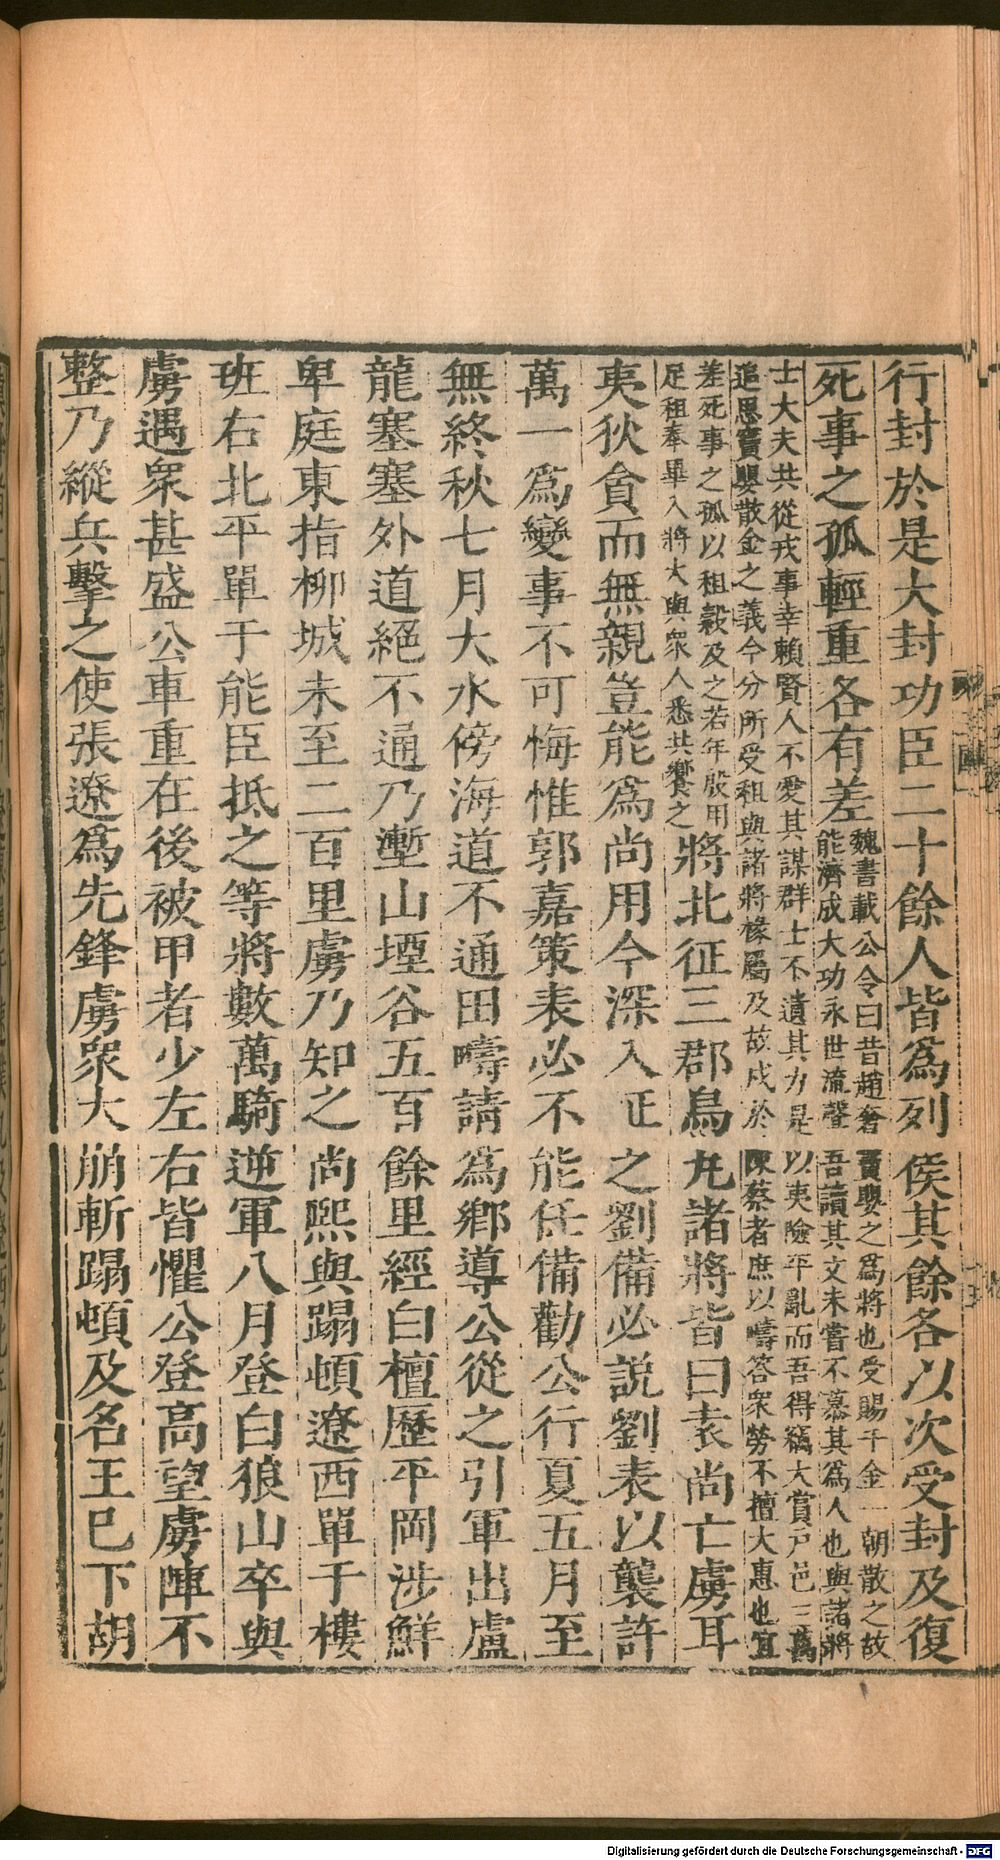 行封於是大封功臣二十餘人皆爲列侯其餘各以次受封及復
死事之孤輕重各有差魏書載公令曰昔趙奢竇嬰之爲將也受賜千金一朝散之故
能濟成大功永世流聲吾讀其文未嘗不慕其爲人也與諸將
士大夫共從戎事幸賴賢人不愛其謀群士不遺其力是以夷險平亂而吾得竊大賞戶邑三萬
追思竇嬰散金之義今分所受租與諸將掾屬及故戍於陳蔡者庶以疇答衆勞不擅大惠也宜
差死事之孤以租穀及之若年殷用
足租奉畢入將大與衆人悉共饗之將北征三郡烏丸諸將皆曰袁尚亡虜耳
夷狄貪而無親豈能爲尚用今深入征之劉備必說劉表以襲許
萬一爲變事不可悔惟郭嘉策表必不能任備勸公行夏五月至
無終秋七月大水傍海道不通田疇請爲鄉導公從之引軍出盧
龍塞塞外道絕不通乃塹山堙谷五百餘里經白檀歷平岡涉鮮
卑庭東指柳城未至二百里虜乃知之尚熙與蹋頓遼西單于樓
班右北平單于能臣抵之等將數萬騎逆軍八月登白狼山卒與
虜遇衆甚盛公車重在後被甲者少左右皆懼公登高望虜陣不
整乃縱兵擊之使張遼爲先鋒虜衆大崩斬蹋頓及名王已下胡
Digitalisierung gefördert durch die Deutsche Forschungsgemeinschaft - DFG